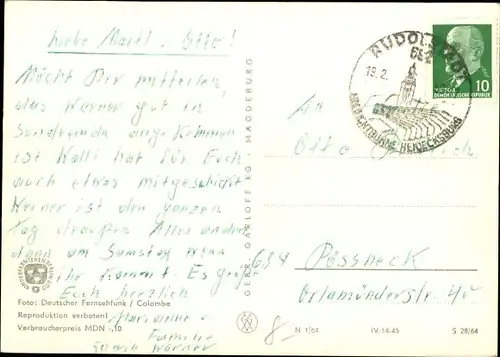 Liebe Martl. Otto!
Möcht Dir mitteilen,
das Werner gut in
angekommen
ist Walli hat für Euch
auch etwas mitgeschickt
Werner ist den ganzen
Tag draußen Alles andere
dann am Samstag wenn
ihr kommt. Es grüßt
Euch herzlich
Marianne
Familie
sowie Werner
Foto: Deutscher Fernsehfunk / Colombe
Reproduktion verboten!
Verbraucherpreis MDN -,10
GEBR. GARLOFF KG MAGDEBURG
RUDOLSTADT
19.2.
HEIDECKSBURG
10
DEUTSCHE DEMOKRATISCHE REPUBLIK
An
Otto
684 Pössneck
Orlamünderstr. 40
8-
N 1/64 IV-14-45 S 28/64